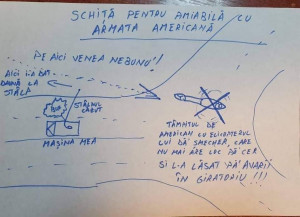 SCHIȚĂ PENTRU AMIABILĂ CU
ARMATA AMERICANĂ
PE AICI VENEA NEBUNU'!
AICI I-A DAT
DAUNĂ LA
STÂLP
STÂLPUL
CĂZUT
MAȘINA MEA
TÂMPITUL DE
AMERICAN CU ELICOPTERUL
LUI DĂ ȘMECHER, CARE
NU MAI ARE LOC PĂ CER
ȘI L-A LĂSAT PĂ AVARII
ÎN GIRATORIU !!!